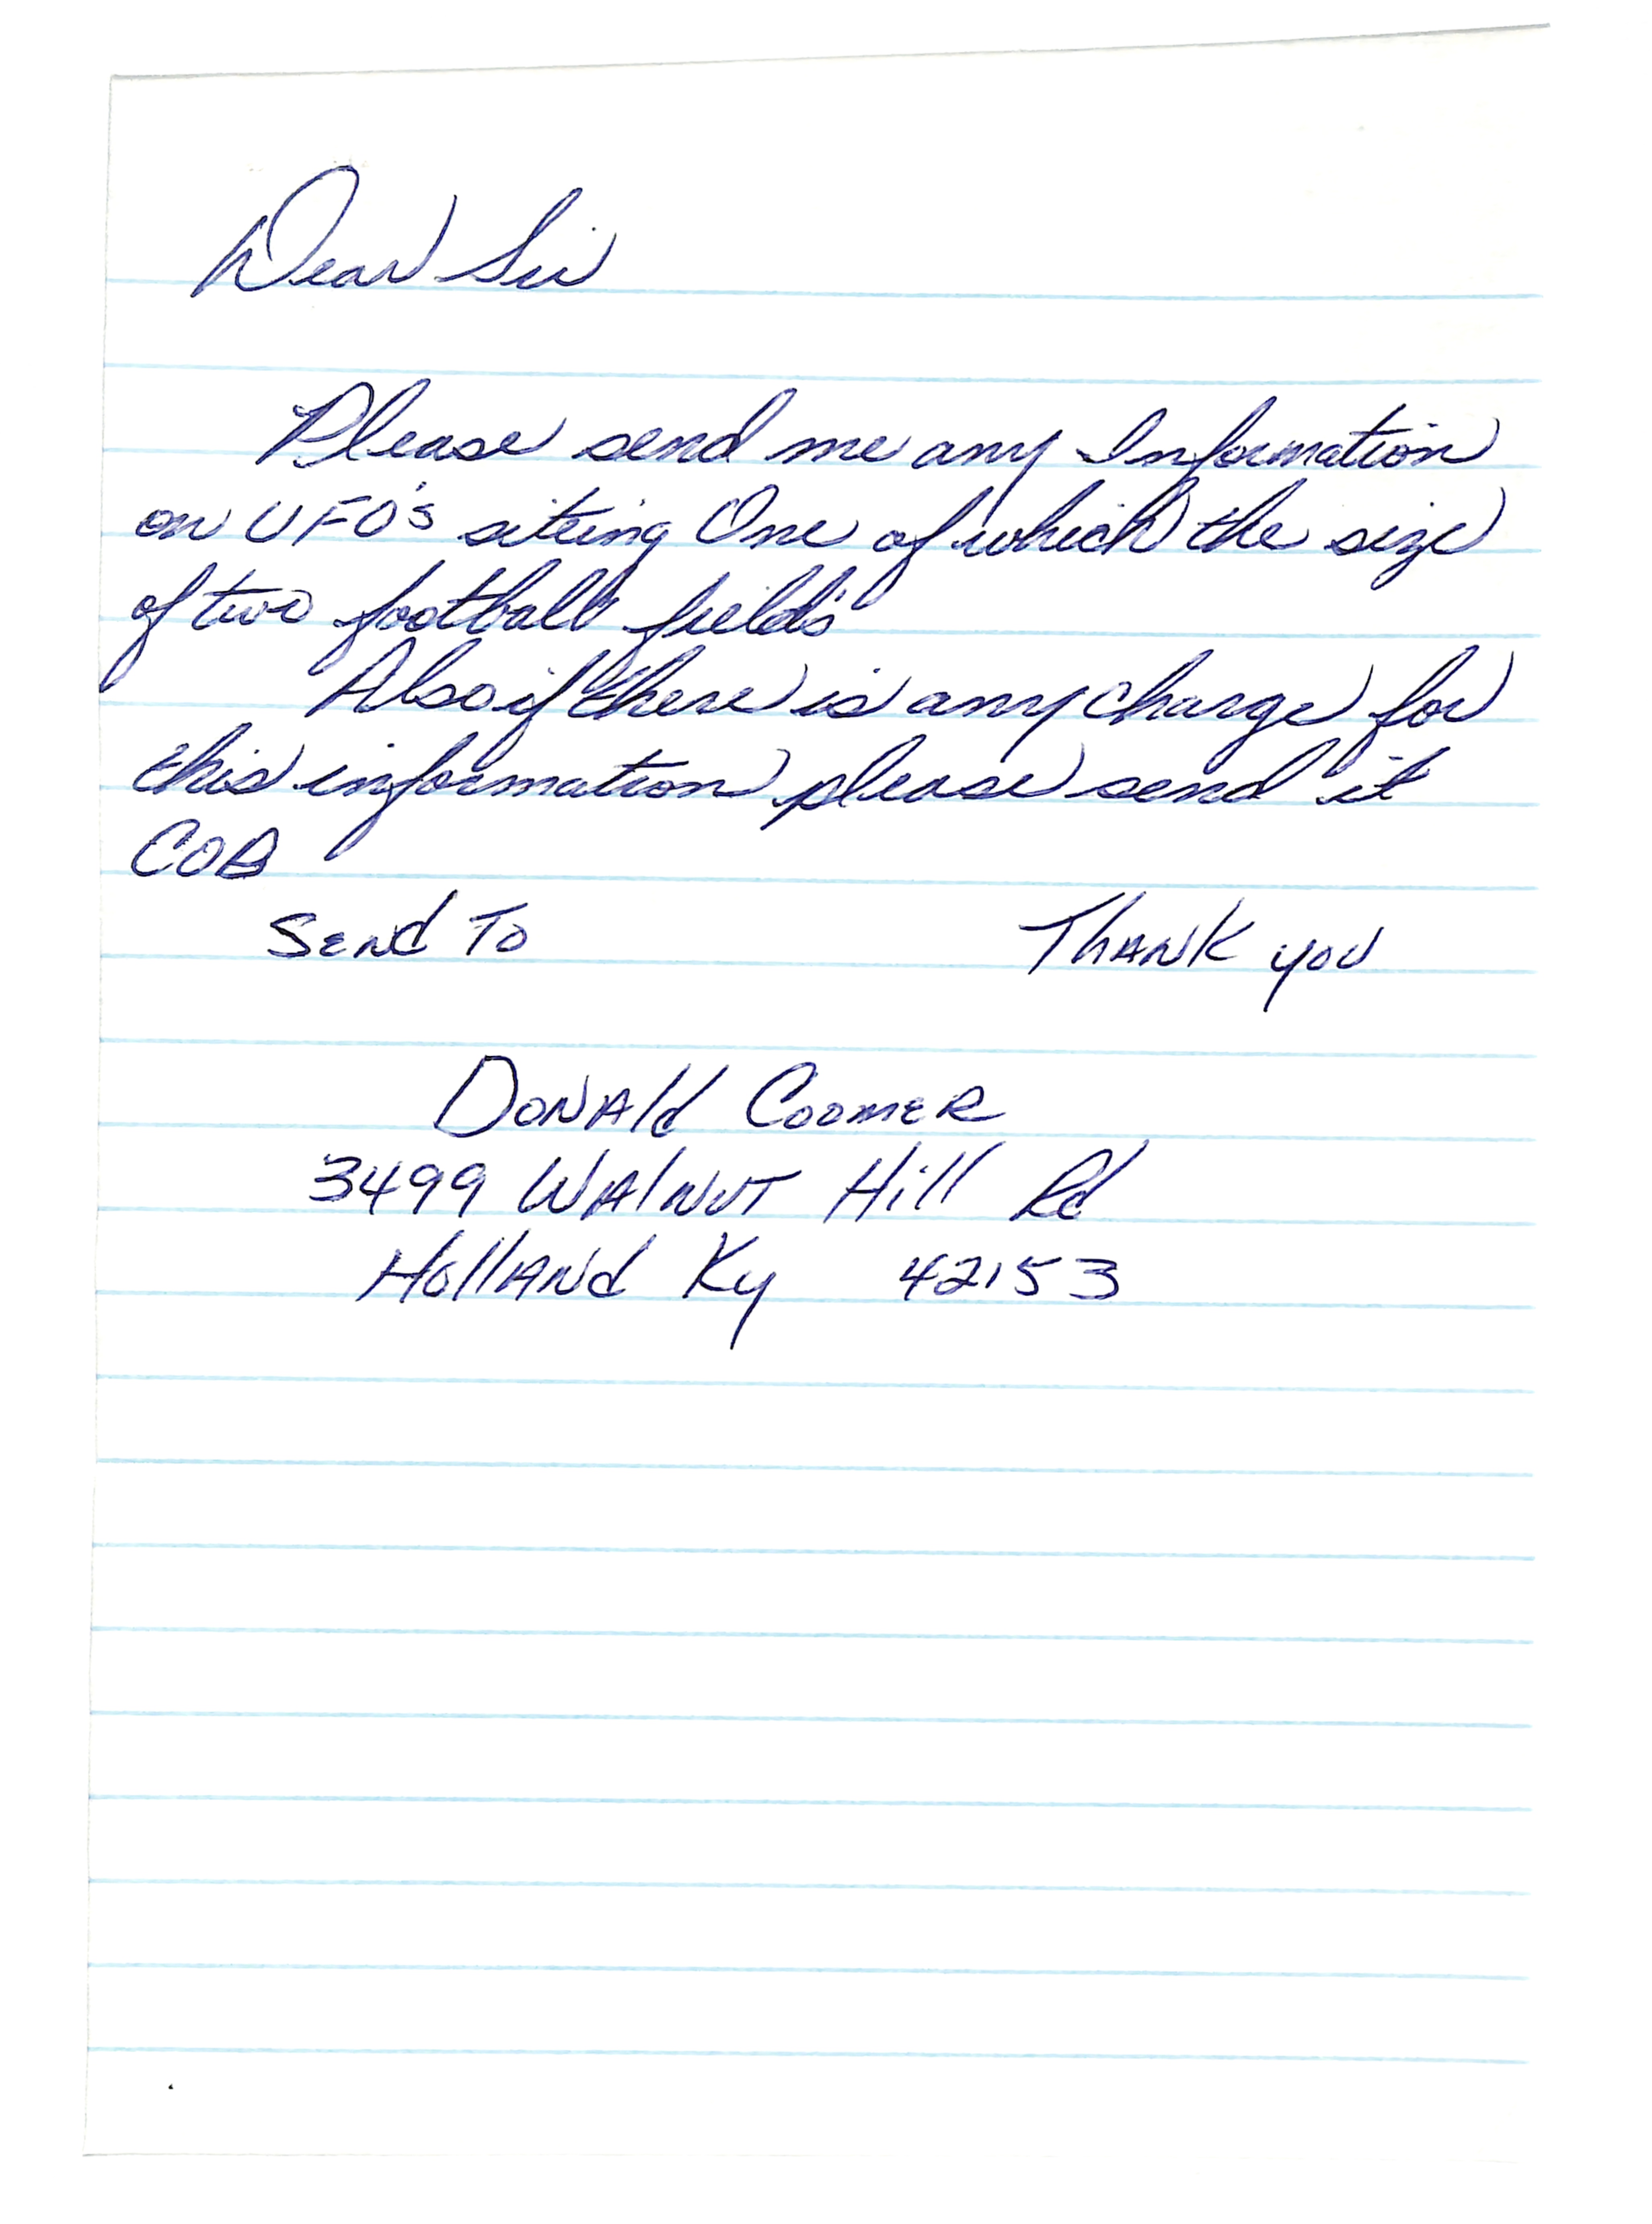 Dear Sir
Please send me any Information
on UFO's siteing One of which the size
of two football field's
Also if there is any charge for
this information please send it
COD
Send To Thank you
Donald Coomer
3499 Walnut Hill Rd
Holland Ky 42153